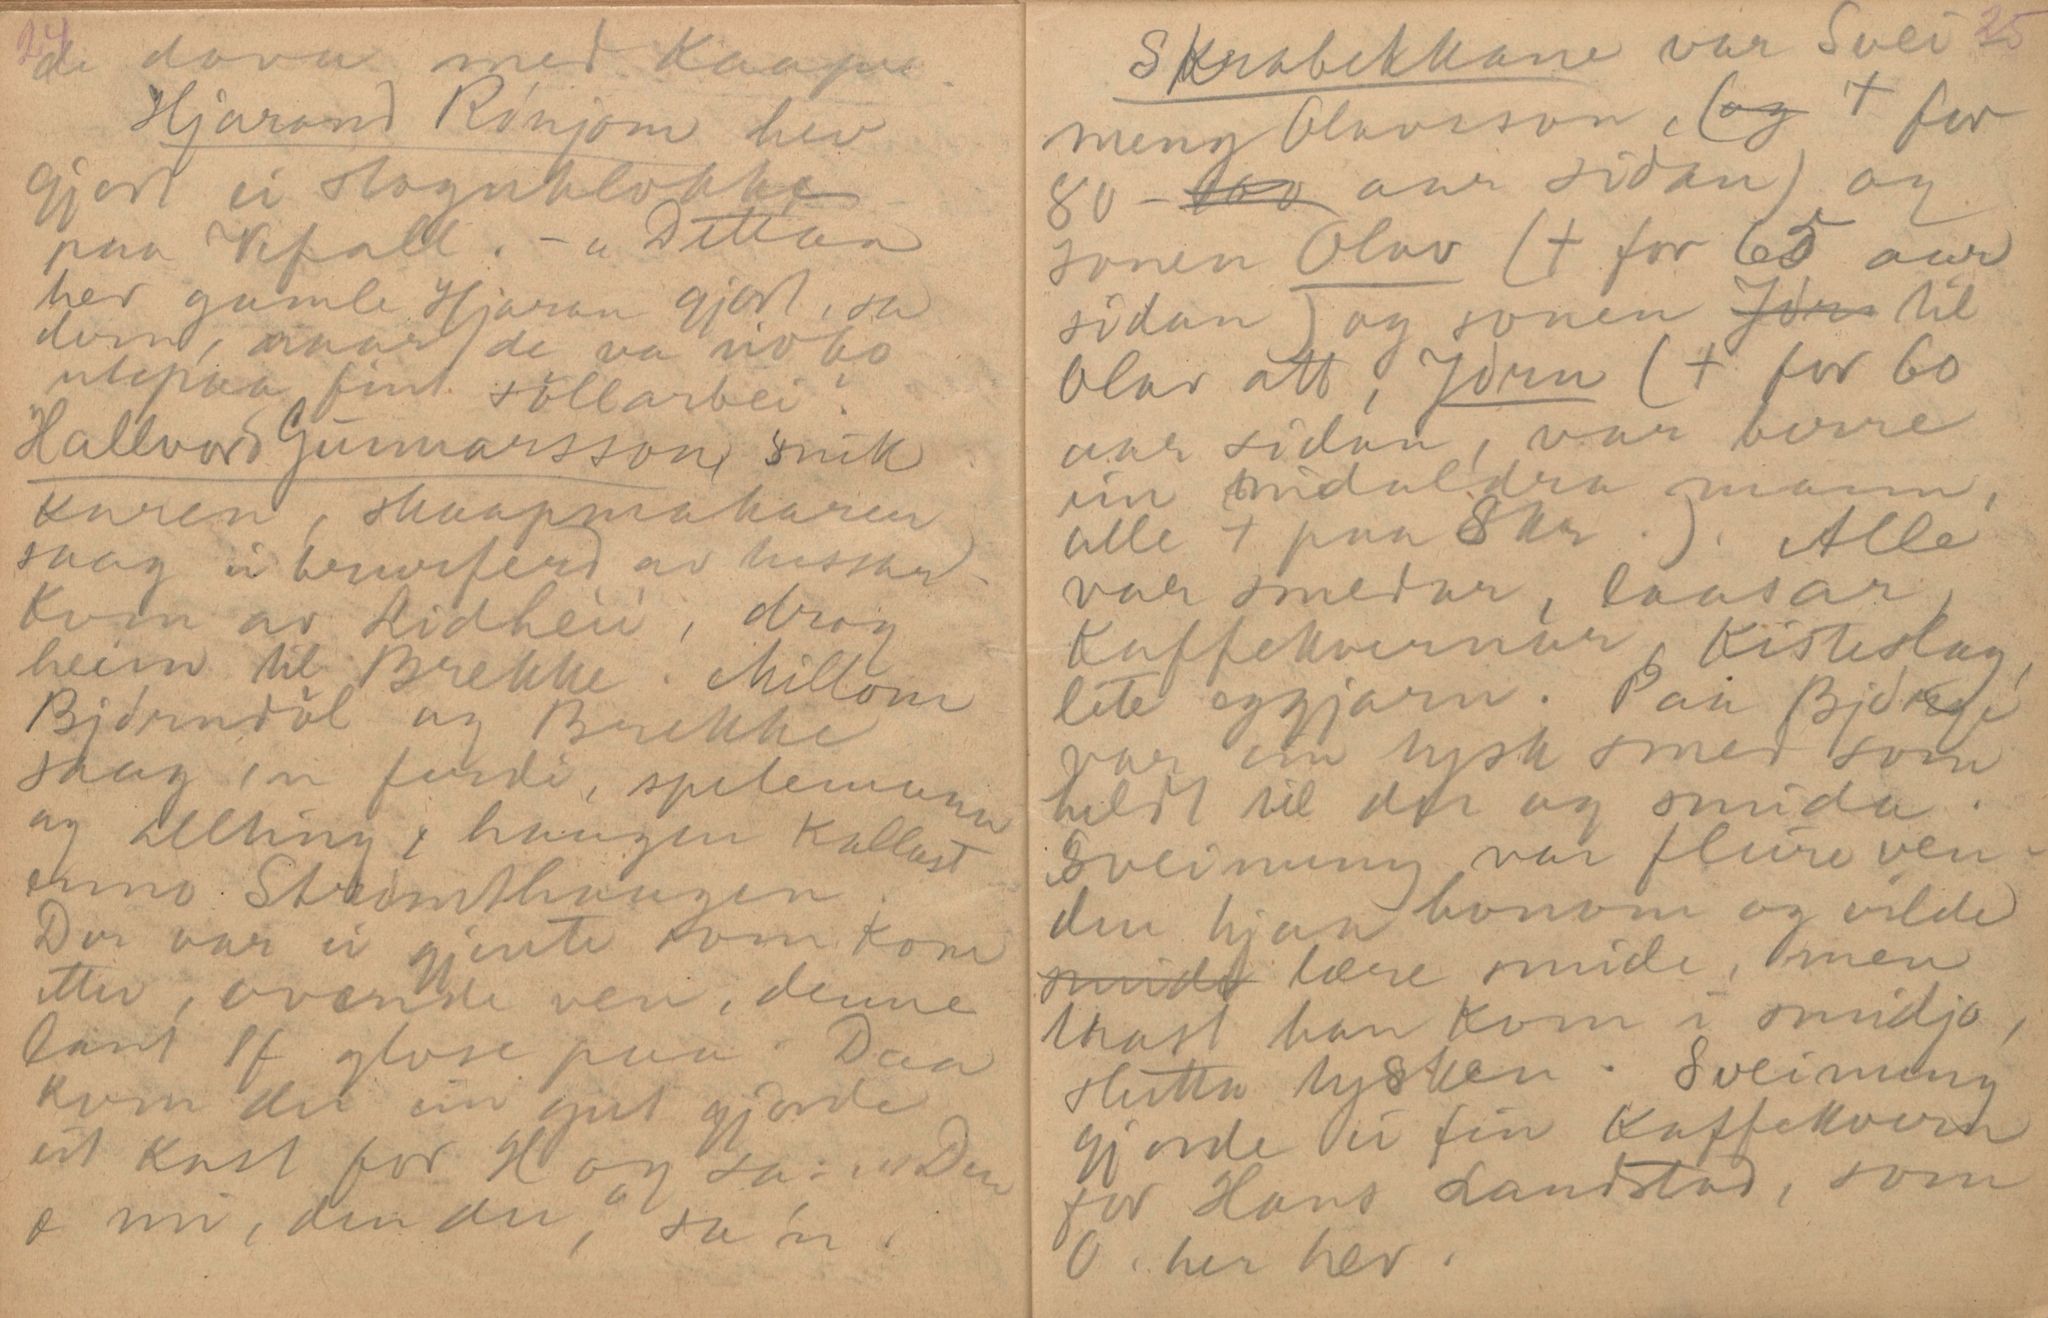 24
de dova med Kaapu.
Hjarand Rónjom hev
gjort ei stoguklokke
paa Vefall. – "Dettan
hev gamle Hjaran gjort, sa
dom, naar de va noko
utepaa fint söllarbei".
Hallvord Gunnarsson, snik
karen, skaapmakaren
saag ei bruurferd av hussar
Kom av Lidheii, drog
heim til Brekke. Millom
Björndöl og Brekke
saag 'n ferdi, spelemann
og allting, haugen kallast
enno Straumthaugen.
Der var ei gjente som kom
etter, ovende ven, denne
lant H glose paa. Daa
kom der ein gut gjorde
eit kast for H og sa: "Den
e mi, den der," sa 'n.
25
Skrabekkane var Svei
neng Olavsson, (og † for
80 - 100 aar sidan) og
sonen Olav († for 65 aar
sidan) og sonen Jörn til
Olav att, Jörn († for 60
aar sidan, var berre
ein midaldra mann,
alle † paa Skr.). Alle
var smedar, laasar,
Kaffekvernar, Kisteslag,
lete eggjarn. Paa Bjórge
var ein tysk smed som
heldt til der og smida.
Sveinung var fleire ven-
der hjaa honom og vilde
smide lære smide, men
trast han kom i smidjo,
slutta tysken. Sveinung
gjorde ei fin Kaffekvern
for Hans Landstad, som
O. her hev.